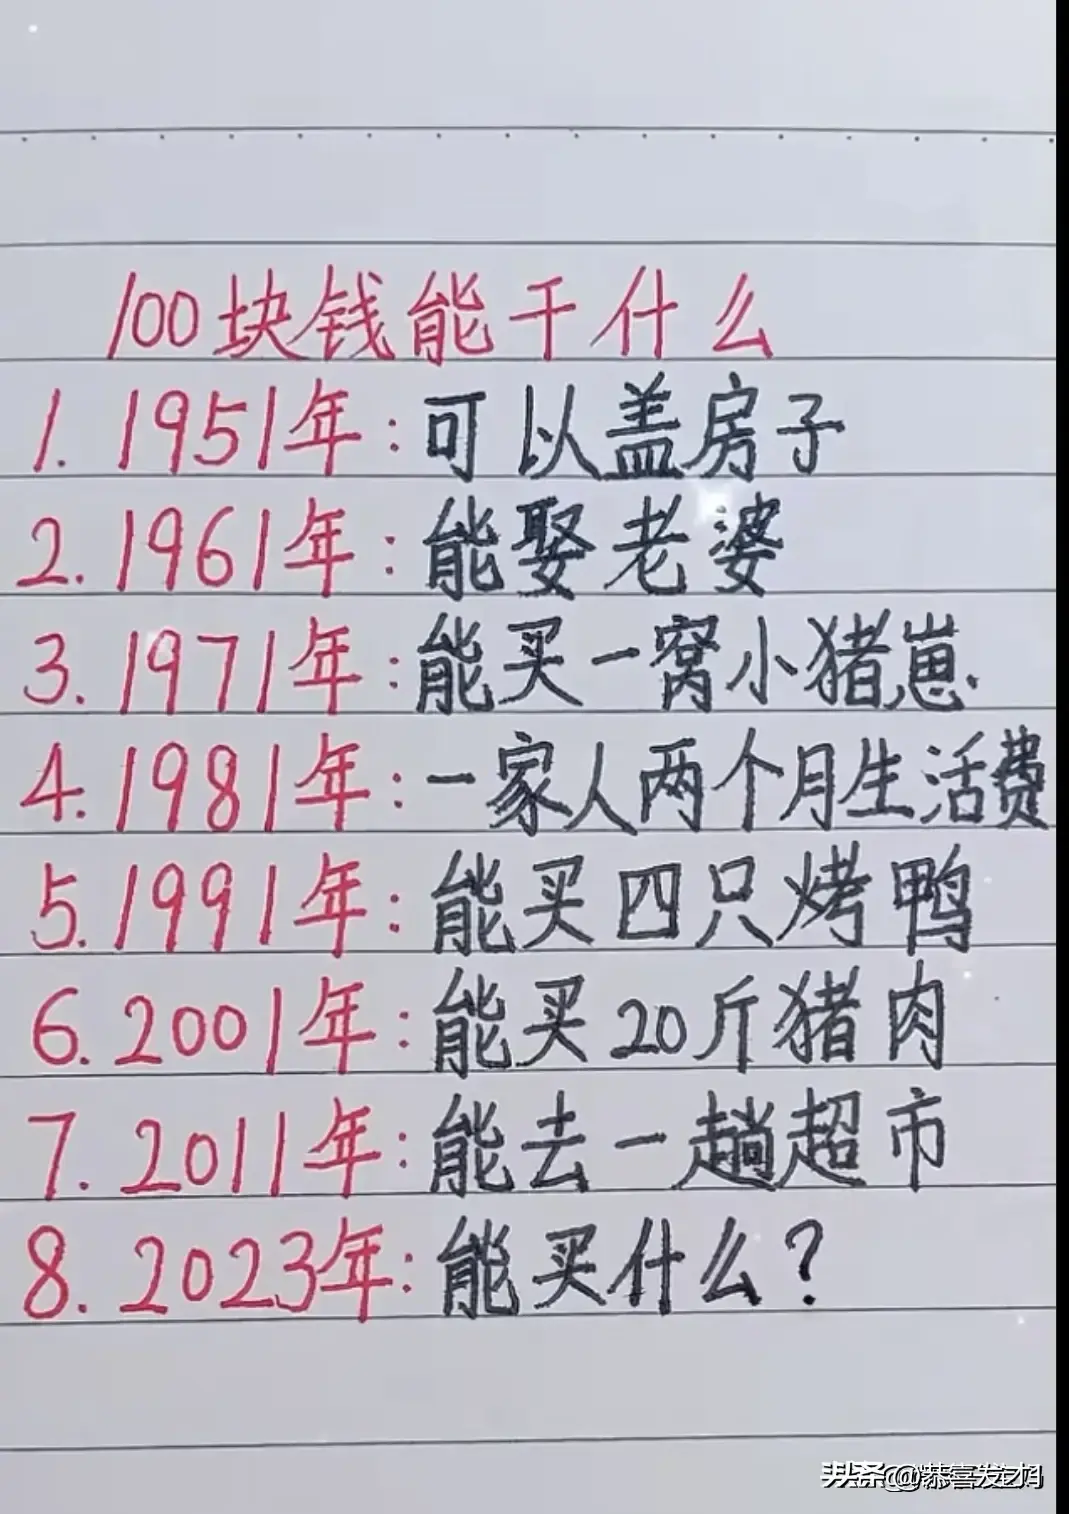 100块钱能干什么
1. 1951年:可以盖房子
2. 1961年:能娶老婆
3. 1971年:能买一窝小猪崽.
4. 1981年:一家人两个月生活费
5. 1991年:能买四只烤鸭
6. 2001年:能买20斤猪肉
7. 2011年:能去一趟超市
8. 2023年:能买什么?
头条 @恭喜发财